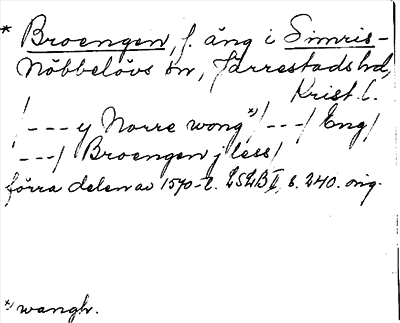 * Broengen, f. äng i Simris-
Nöbbelövs sn, Järrestads hd,
Krist. l.
/--- y Norre wong *)/---/ Eng/
---/ Broengen j less/
förra delen av 1570-t. LSLB I, s. 240. orig.
*) wangh.